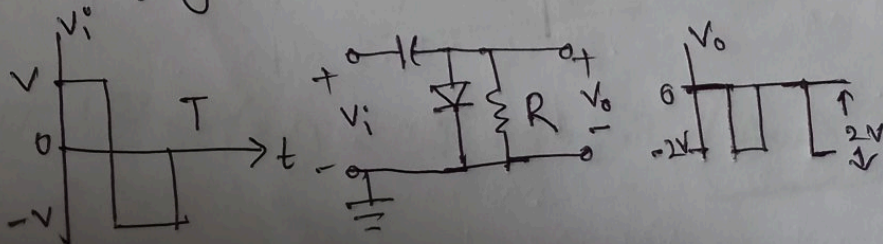 Vi
V
0
-V
T
t
+
Vi
-
R
+
Vo
-
Vo
0
-2V
2V